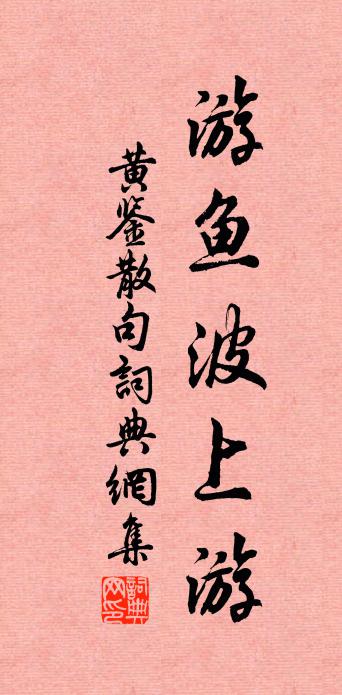 游鱼波上游
黄鉴散句詞典網集
詞典
网印